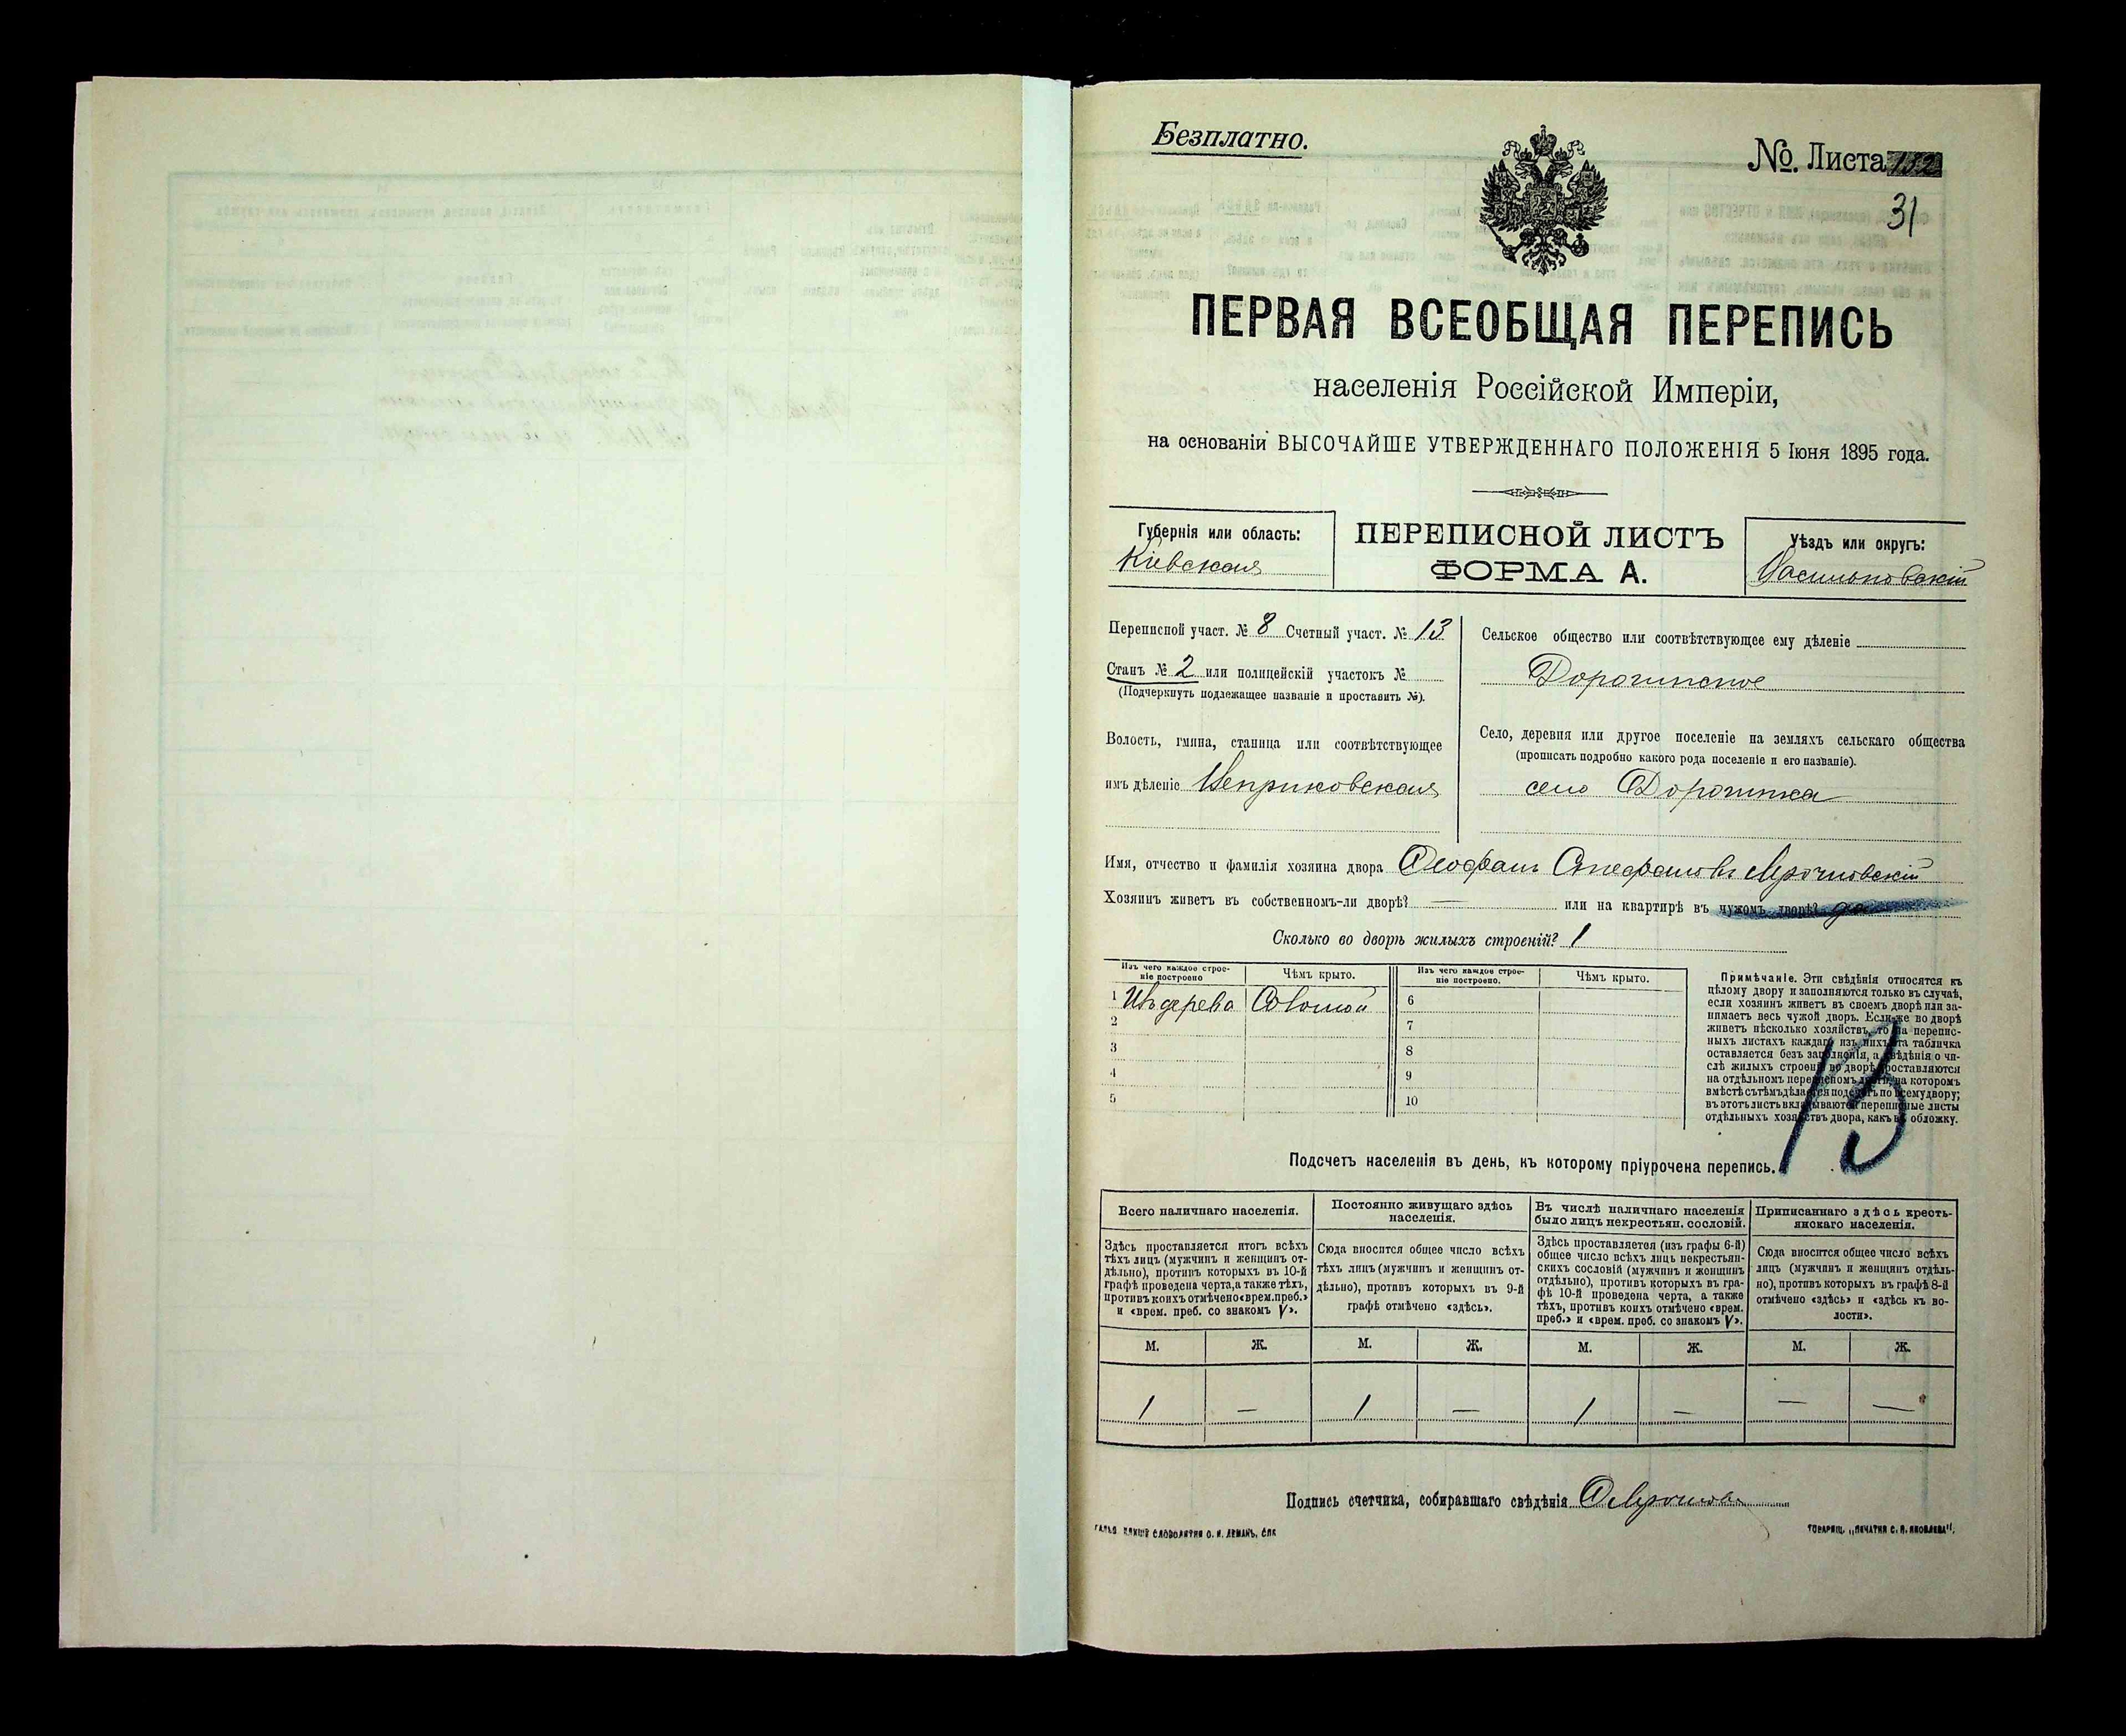 Безплатно.
№ Листа 132
31
ПЕРВАЯ ВСЕОБЩАЯ ПЕРЕПИСЬ
населенія Россійской Имперіи,
на основаніи ВЫСОЧАЙШЕ УТВЕРЖДЕННАГО ПОЛОЖЕНІЯ 5 Іюня 1895 года.
Губернія или область:
Кіевская
ПЕРЕПИСНОЙ ЛИСТЪ
ФОРМА А.
Уѣздъ или округъ:
Васильковскій
Переписной участ. № 8 Счетный участ. № 13
Станъ № 2 или полицейскій участокъ №
(Подчеркнуть подлежащее названіе и проставить №).
Волость, гмина, станица или соотвѣтствующее
имъ дѣленіе Веприковская
Сельское общество или соотвѣтствующее ему дѣленіе
Дорогинское
Село, деревня или другое поселеніе на земляхъ сельскаго общества
(прописать подробно какого рода поселеніе и его названіе).
село Дорогинка
Имя, отчество и фамилія хозяина двора Феофанъ Стефановъ
Хозяинъ живетъ въ собственномъ-ли дворѣ? — или на квартирѣ въ чужомъ дворѣ? да
Сколько во дворѣ жилыхъ строеній? 1
Изъ чего каждое строе-
ніе построено
Чѣмъ крыто.
Изъ чего каждое строе-
ніе построено.
Чѣмъ крыто.
1 Изъ дерева Соломой
2
3
4
5
6
7
8
9
10
Примѣчаніе. Эти свѣдѣнія относятся къ
цѣлому двору и заполняются только въ случаѣ,
если хозяинъ живетъ въ своемъ дворѣ или за-
нимаетъ весь чужой дворъ. Если-же во дворѣ
живетъ нѣсколько хозяйствъ, то на перепис-
ныхъ листахъ каждаго изъ нихъ эта табличка
оставляется безъ заполненія, а свѣдѣнія о чи-
слѣ жилыхъ строеній во дворѣ проставляются
на отдѣльномъ переписномъ листѣ, на которомъ
вмѣстѣ съ тѣмъ дѣлается подсчетъ по всему двору;
въ этотъ листъ вкладываются переписные листы
отдѣльныхъ хозяйствъ двора, какъ въ обложку.
13
Подсчетъ населенія въ день, къ которому пріурочена перепись.
Всего наличнаго населенія.
Здѣсь проставляется итогъ всѣхъ
тѣхъ лицъ (мужчинъ и женщинъ от-
дѣльно), противъ которыхъ въ 10-й
графѣ проведена черта, а также тѣхъ,
противъ коихъ отмѣчено «врем. преб.»
и «врем. преб. со знакомъ V».
Постоянно живущаго здѣсь
населенія.
Сюда вносится общее число всѣхъ
тѣхъ лицъ (мужчинъ и женщинъ от-
дѣльно), противъ которыхъ въ 9-й
графѣ отмѣчено «здѣсь».
Въ числѣ наличнаго населенія
было лицъ некрестьян. сословій.
Здѣсь проставляется (изъ графы 6-й)
общее число всѣхъ лицъ некрестьян-
скихъ сословій (мужчинъ и женщинъ
отдѣльно), противъ которыхъ въ гра-
фѣ 10-й проведена черта, а также
тѣхъ, противъ коихъ отмѣчено «врем.
преб.» и «врем. преб. со знакомъ V».
Приписаннаго здѣсь кресть-
янскаго населенія.
Сюда вносится общее число всѣхъ
лицъ (мужчинъ и женщинъ отдѣль-
но), противъ которыхъ въ графѣ 8-й
отмѣчено «здѣсь» и «здѣсь къ во-
лости».
М. Ж. М. Ж. М. Ж. М. Ж.
1 — 1 — 1 — — —
Подпись счетчика, собиравшаго свѣдѣнія
СЛОВОЛИТНЯ О. И. ЛЕМАНЪ, СПБ
ТОВАРИЩ. „ПЕЧАТНЯ С. П. ЯКОВЛЕВА“.